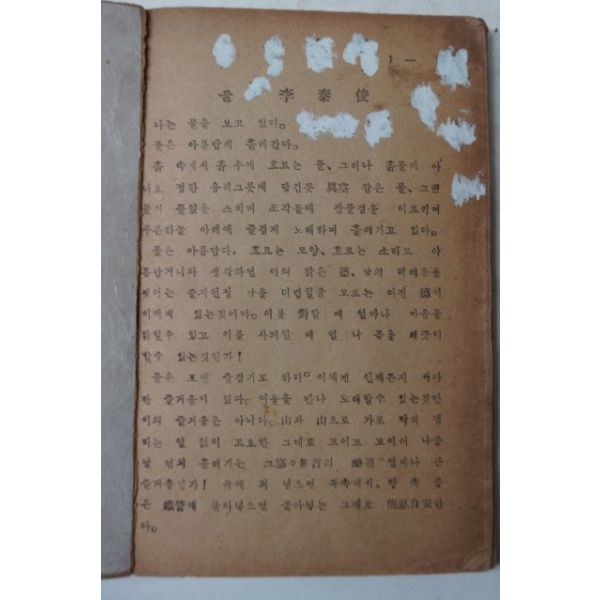 1 —
물 李泰俊
나는 물을 보고 있다。
물은 아름답게 흘러간다。
흙 속에서 흙 우에 흐르는 물、그러나 흙물이 아
니요 정한 유리그릇에 담긴듯 眞空 같은 물、그런
물이 풀잎을 스치며 조각돌에 잔물결을 이르키며
푸른하늘 아래에 즐겁게 노래하며 흘러가고 있다。
물은 아름답다。흐르는 모양、흐르는 소리도 아
름답거니와 생각하면 이의 맑은 德、남의 더러움을
씻어는 줄지언정 남을 더럽힐줄 모르는 어진 德이
이에게 있는것이다。이를 對할 때 얼마나 마음을
맑힐수 있고 이를 사괴일 때 얼나 몸을 깨끗이
할수 있는것인가!
물은 보면 즐겁기도 하다。이에게 언제든지 커다
란 즐거움이 있다。여울을 만나 노래할수 있는것만
이의 즐거움은 아니다。山과 山으로 가로 막되 덤
비는 일 없이 고요한 그대로 고이고 고이어 나중
날 넘쳐 흘러가는 그 悠々無言의 얼마나 큰
즐거움인가! 독에 퍼 넣으면 독속에서、땅 속 좁
은 鐵管에 몰아넣으면 몰아넣는 그대로 自安한
다。